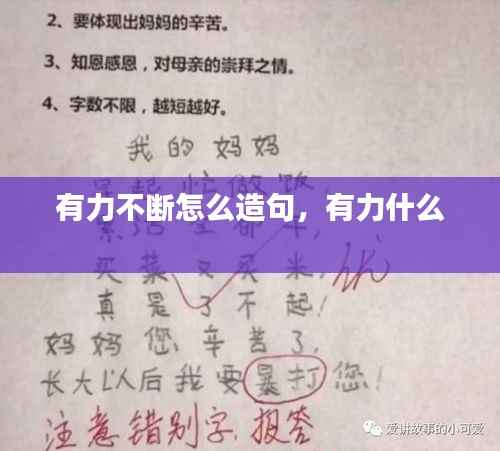 2、要体现出妈妈的辛苦。
3、知恩感恩，对母亲的崇拜之情。
4、字数不限，越短越好。
我的妈妈
有力不断怎么造句，有力什么
买菜又买米，
优
真是了不起！
妈妈您辛苦了，
长大以后我要暴打您！
注意错别字.报答
爱讲故事的小可爱